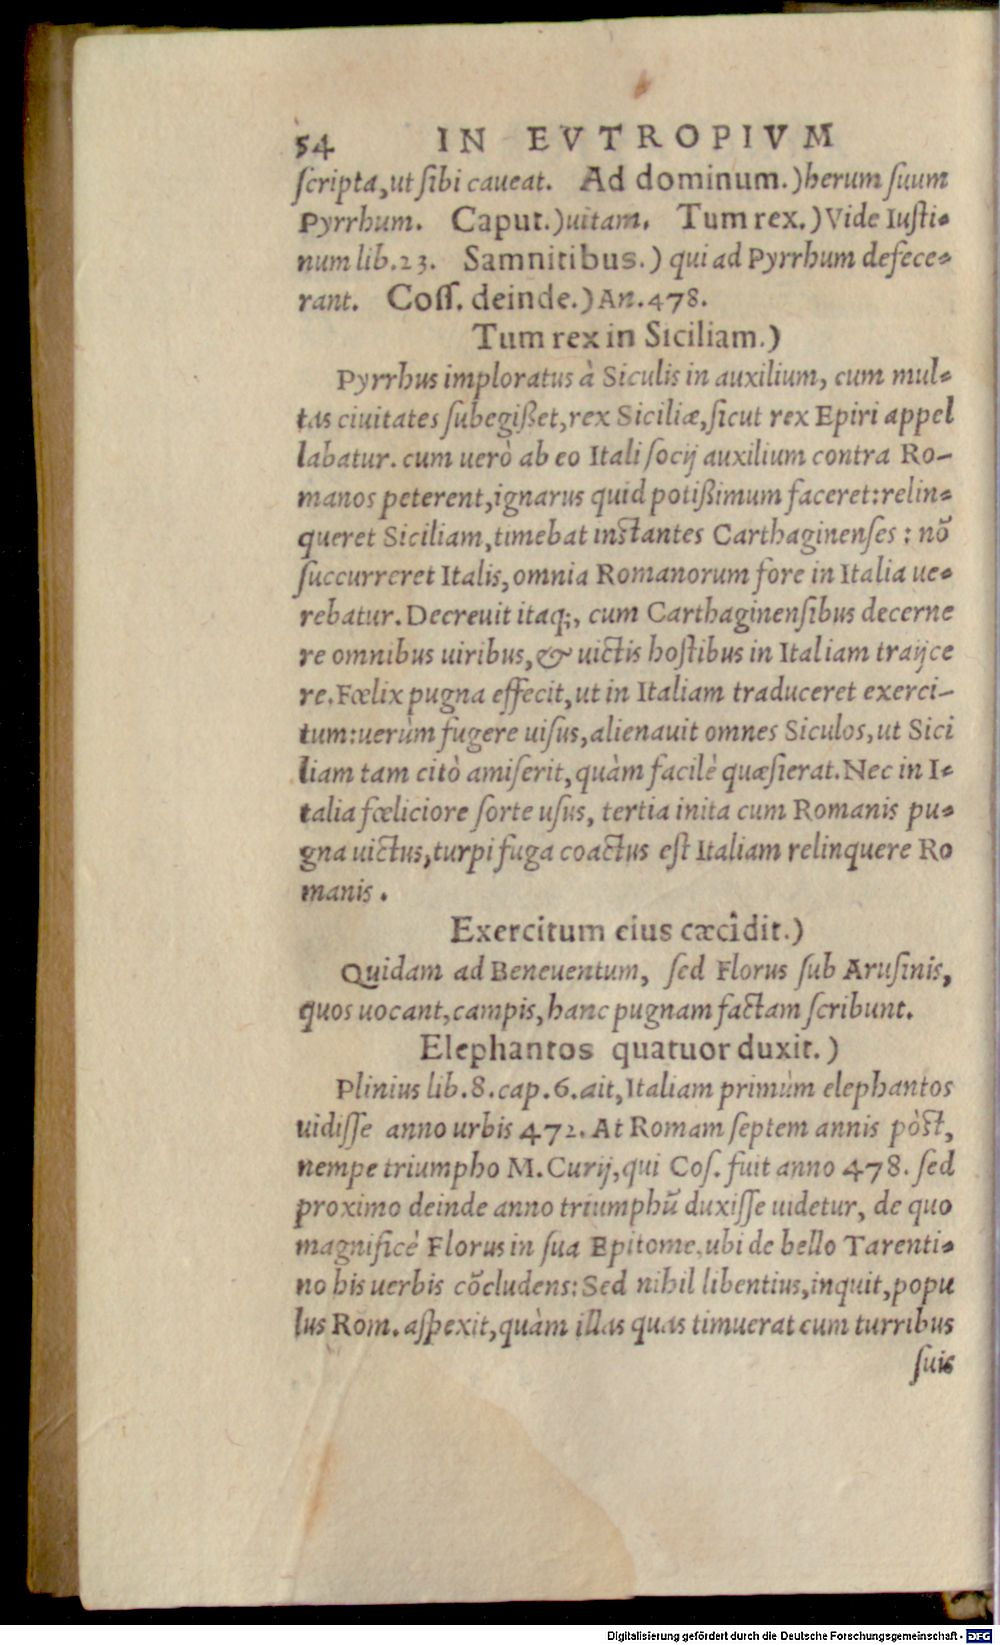 54 IN EVTROPIVM
scripta, ut sibi caueat. Ad dominum.) herum suum
Pyrrhum. Caput.) uitam. Tum rex.) Vide Iusti-
num lib. 23. Samnitibus.) qui ad Pyrrhum defece-
rant. Coss. deinde.) An. 478.
Tum rex in Siciliam.)
Pyrrhus imploratus à Siculis in auxilium, cum mul-
tas ciuitates subegißet, rex Siciliæ, sicut rex Epiri appel
labatur. cum uerò ab eo Itali socij auxilium contra Ro-
manos peterent, ignarus quid potißimum faceret: relin-
queret Siciliam, timebat instantes Carthaginenses: nō
succurreret Italis, omnia Romanorum fore in Italia ue-
rebatur. Decreuit itaq;, cum Carthaginensibus decerne
re omnibus uiribus, & uictis hostibus in Italiam traijce
re. Fœlix pugna effecit, ut in Italiam traduceret exerci-
tum: uerùm fugere uisus, alienauit omnes Siculos, ut Sici
liam tam citò amiserit, quàm facilè quæsierat. Nec in I-
talia fœliciore sorte usus, tertia inita cum Romanis pu-
gna uictus, turpi fuga coactus est Italiam relinquere Ro
manis.
Exercitum eius cæcîdit.)
Quidam ad Beneuentum, sed Florus sub Arusinis,
quos uocant, campis, hanc pugnam factam scribunt.
Elephantos quatuor duxit.)
Plinius lib. 8. cap. 6. ait, Italiam primùm elephantos
uidisse anno urbis 472. At Romam septem annis pòst,
nempe triumpho M. Curij, qui Cos. fuit anno 478. sed
proximo deinde anno triumphū duxisse uidetur, de quo
magnificè Florus in sua Epitome, ubi de bello Tarenti-
no his uerbis cōcludens: Sed nihil libentius, inquit, popu
lus Rom. aspexit, quàm illas quas timuerat cum turribus
suis
Digitalisierung gefördert durch die Deutsche Forschungsgemeinschaft - DFG